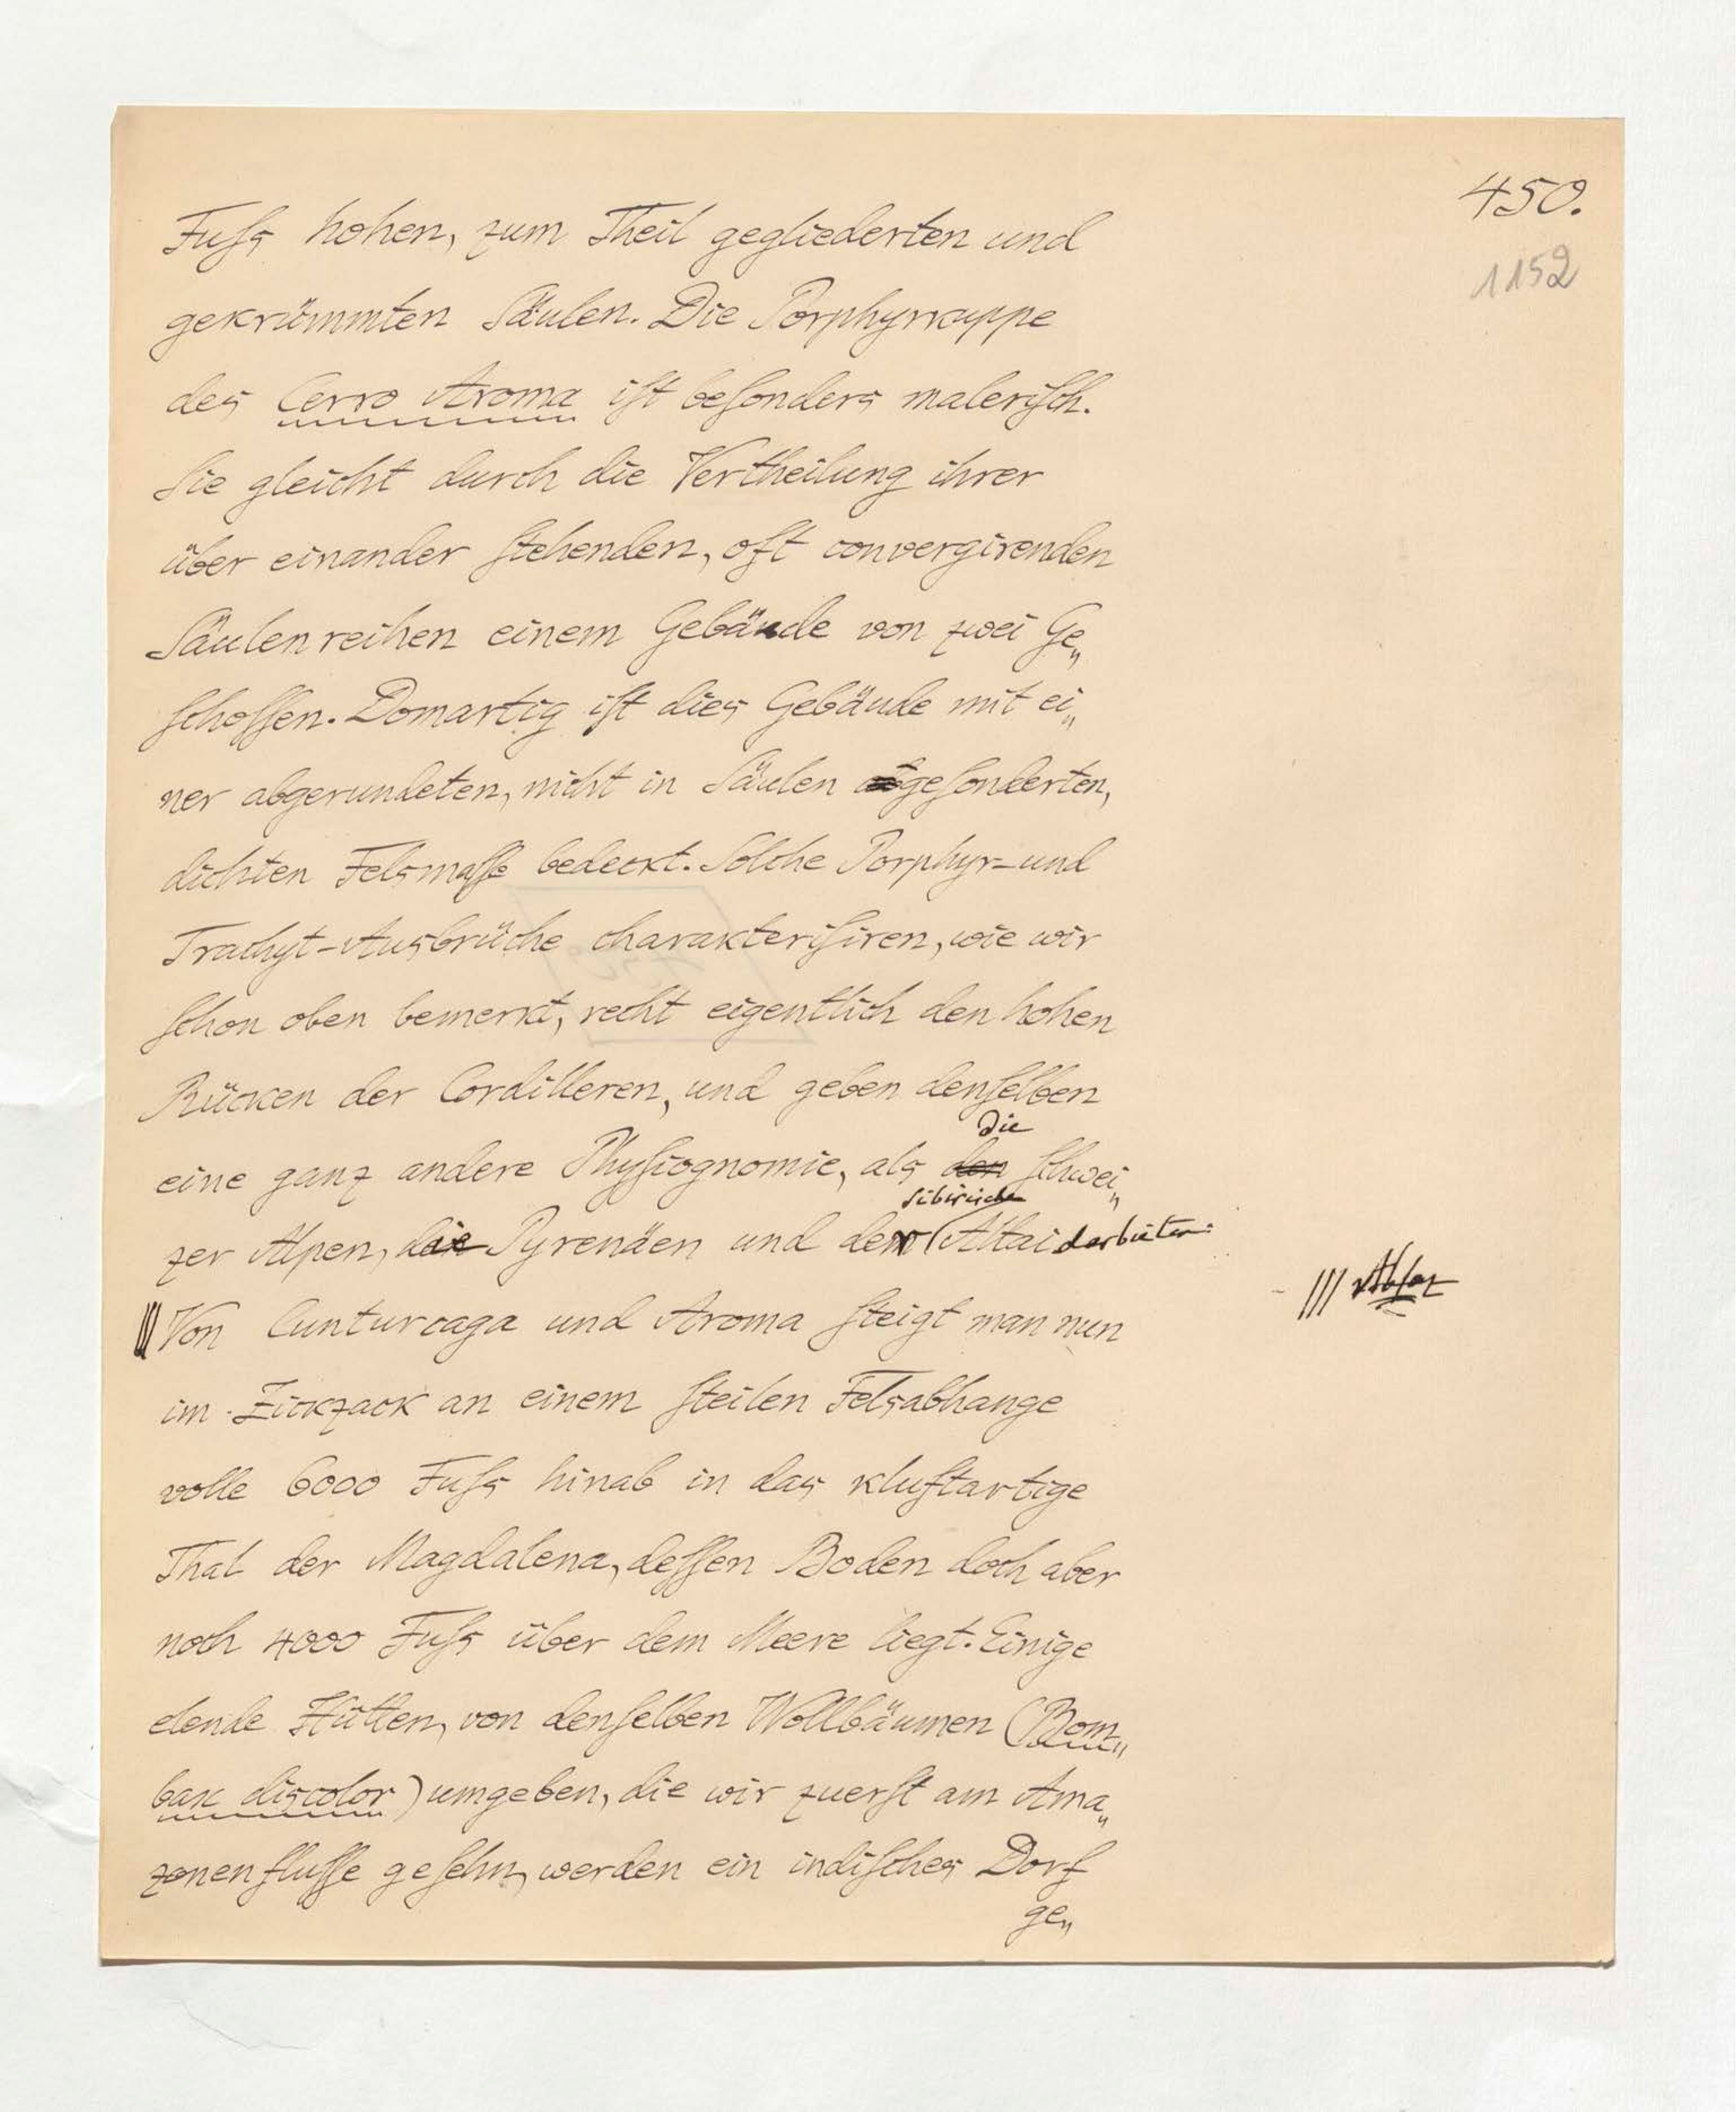 450.
1152
Fuſs hohen, zum Theil gegliederten und
gekrümmten Säulen. Die Porphyrkuppe
des Cerro Aroma iſt beſonders maleriſch.
Sie gleicht durch die Vertheilung ihrer
über einander ſtehenden, oft convergirenden
Säulenreihen einem Gebäude von zwei Ge„
ſchoſſen. Domartig iſt dies Gebäude mit ei„
ner abgerundeten, nicht in Säulen geſonderten,
dichten Felsmaſſe bedeckt. Solche Porphyr-und
Trachyt-Ausbrüche charakteriſiren, wie wir
ſchon oben bemerkt, recht eigentlich den hohen
Rücken der Cordilleren, und geben denſelben
die
eine ganz andere Phyſiognomie, als den Schwei„
ſibiriſche
zer Alpen, die Pyrenäen und der Altai darbieten.
Von Cunturcaga und Aroma ſteigt man nun
||| Abſaz
im Zickzack an einem ſteilen Felsabhange
volle 6000 Fuſs hinab in das kluftartige
Thal der Magdalena, deſſen Boden doch aber
noch 4000 Fuſs über dem Meere liegt. Einige
elende Hütten, von denſelben Wollbäumen (Bom„
bax discolor) umgeben, die wir zuerſt am Ama„
zonenfluſſe geſehn, werden ein indiſches Dorf
ge„